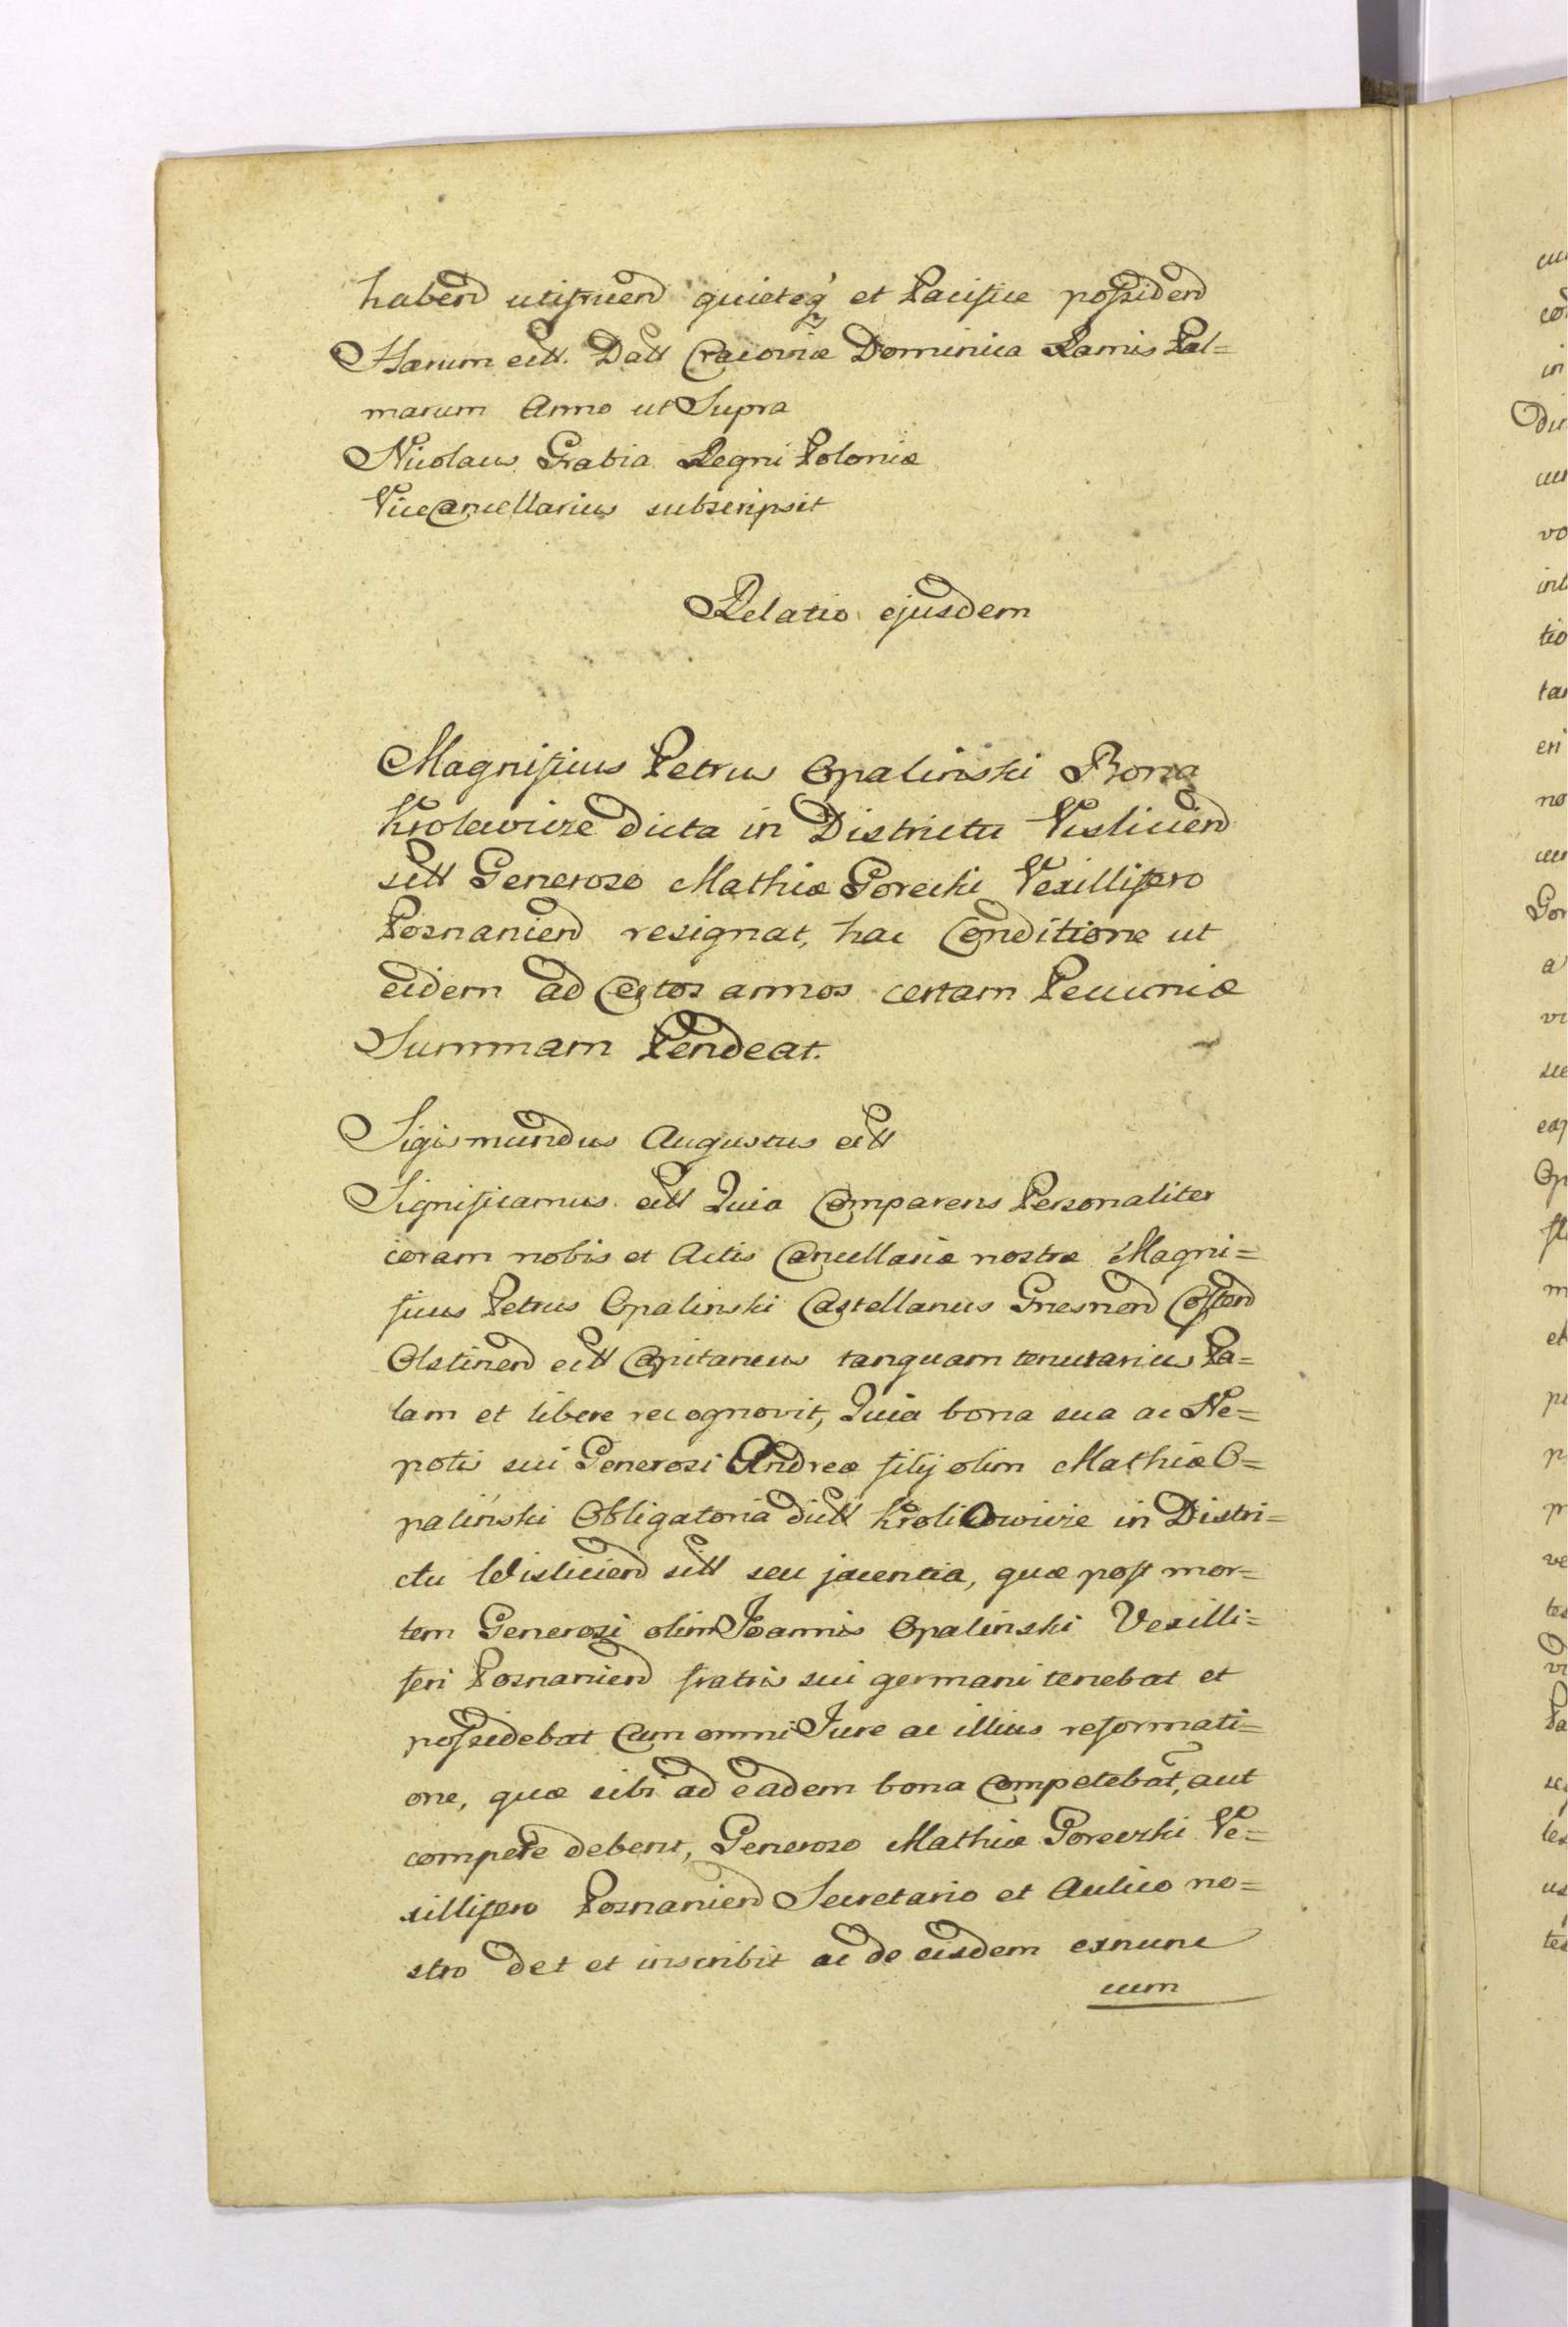 habend utifruend quieteq3 et Pacifice possidend
Harum ett. Datt Cracoviæ Dominica Ramis Pal=
marum Anno ut Supra
Nicolaus Grabia Regni Poloniæ
ViceCancellarius subscripsit
Relatio ejusdem
Magnificus Petrus Opalinski Bona
Krolewicze dicta in Districtu Visliciend
sitt Generoso Mathiæ Gorecki Vexillifero
Posnaniend resignat, hac Conditione ut
eidem ad Certos annos certam Pecuniæ
Summam Pendeat.
Sigismundus Augustus ett
Significamus ett Quia Comparens Personaliter
coram nobis et Actis Cancellariæ nostræ Magni=
ficus Petrus Opalinski Castellanus Gnesnend Costend
Olstinend ett Capitaneus tanquam tenutarius Pa=
lam et libere recognovit, Quia bona sua ac Ne=
potis sui Generosi Andreæ filij olim Mathiæ O=
palinski Obligatoria dictt KroliOwicze in Distri=
ctu Wisliciend sitt seu jacentia, quæ post mor=
tem Generosi olim Joannis Opalinski Vexilli=
feri Posnaniend fratris sui germani tenebat et
possidebat Cum omni Jure ac illius reformati=
one, quæ sibi ad eadem bona Competebat, aut
competē debent, Generoso Mathiæ Gorevzki Ve=
xillifero Posnaniend Secretario et Aulico no=
stro det et inscribit ac de eisdem exnunc
cum